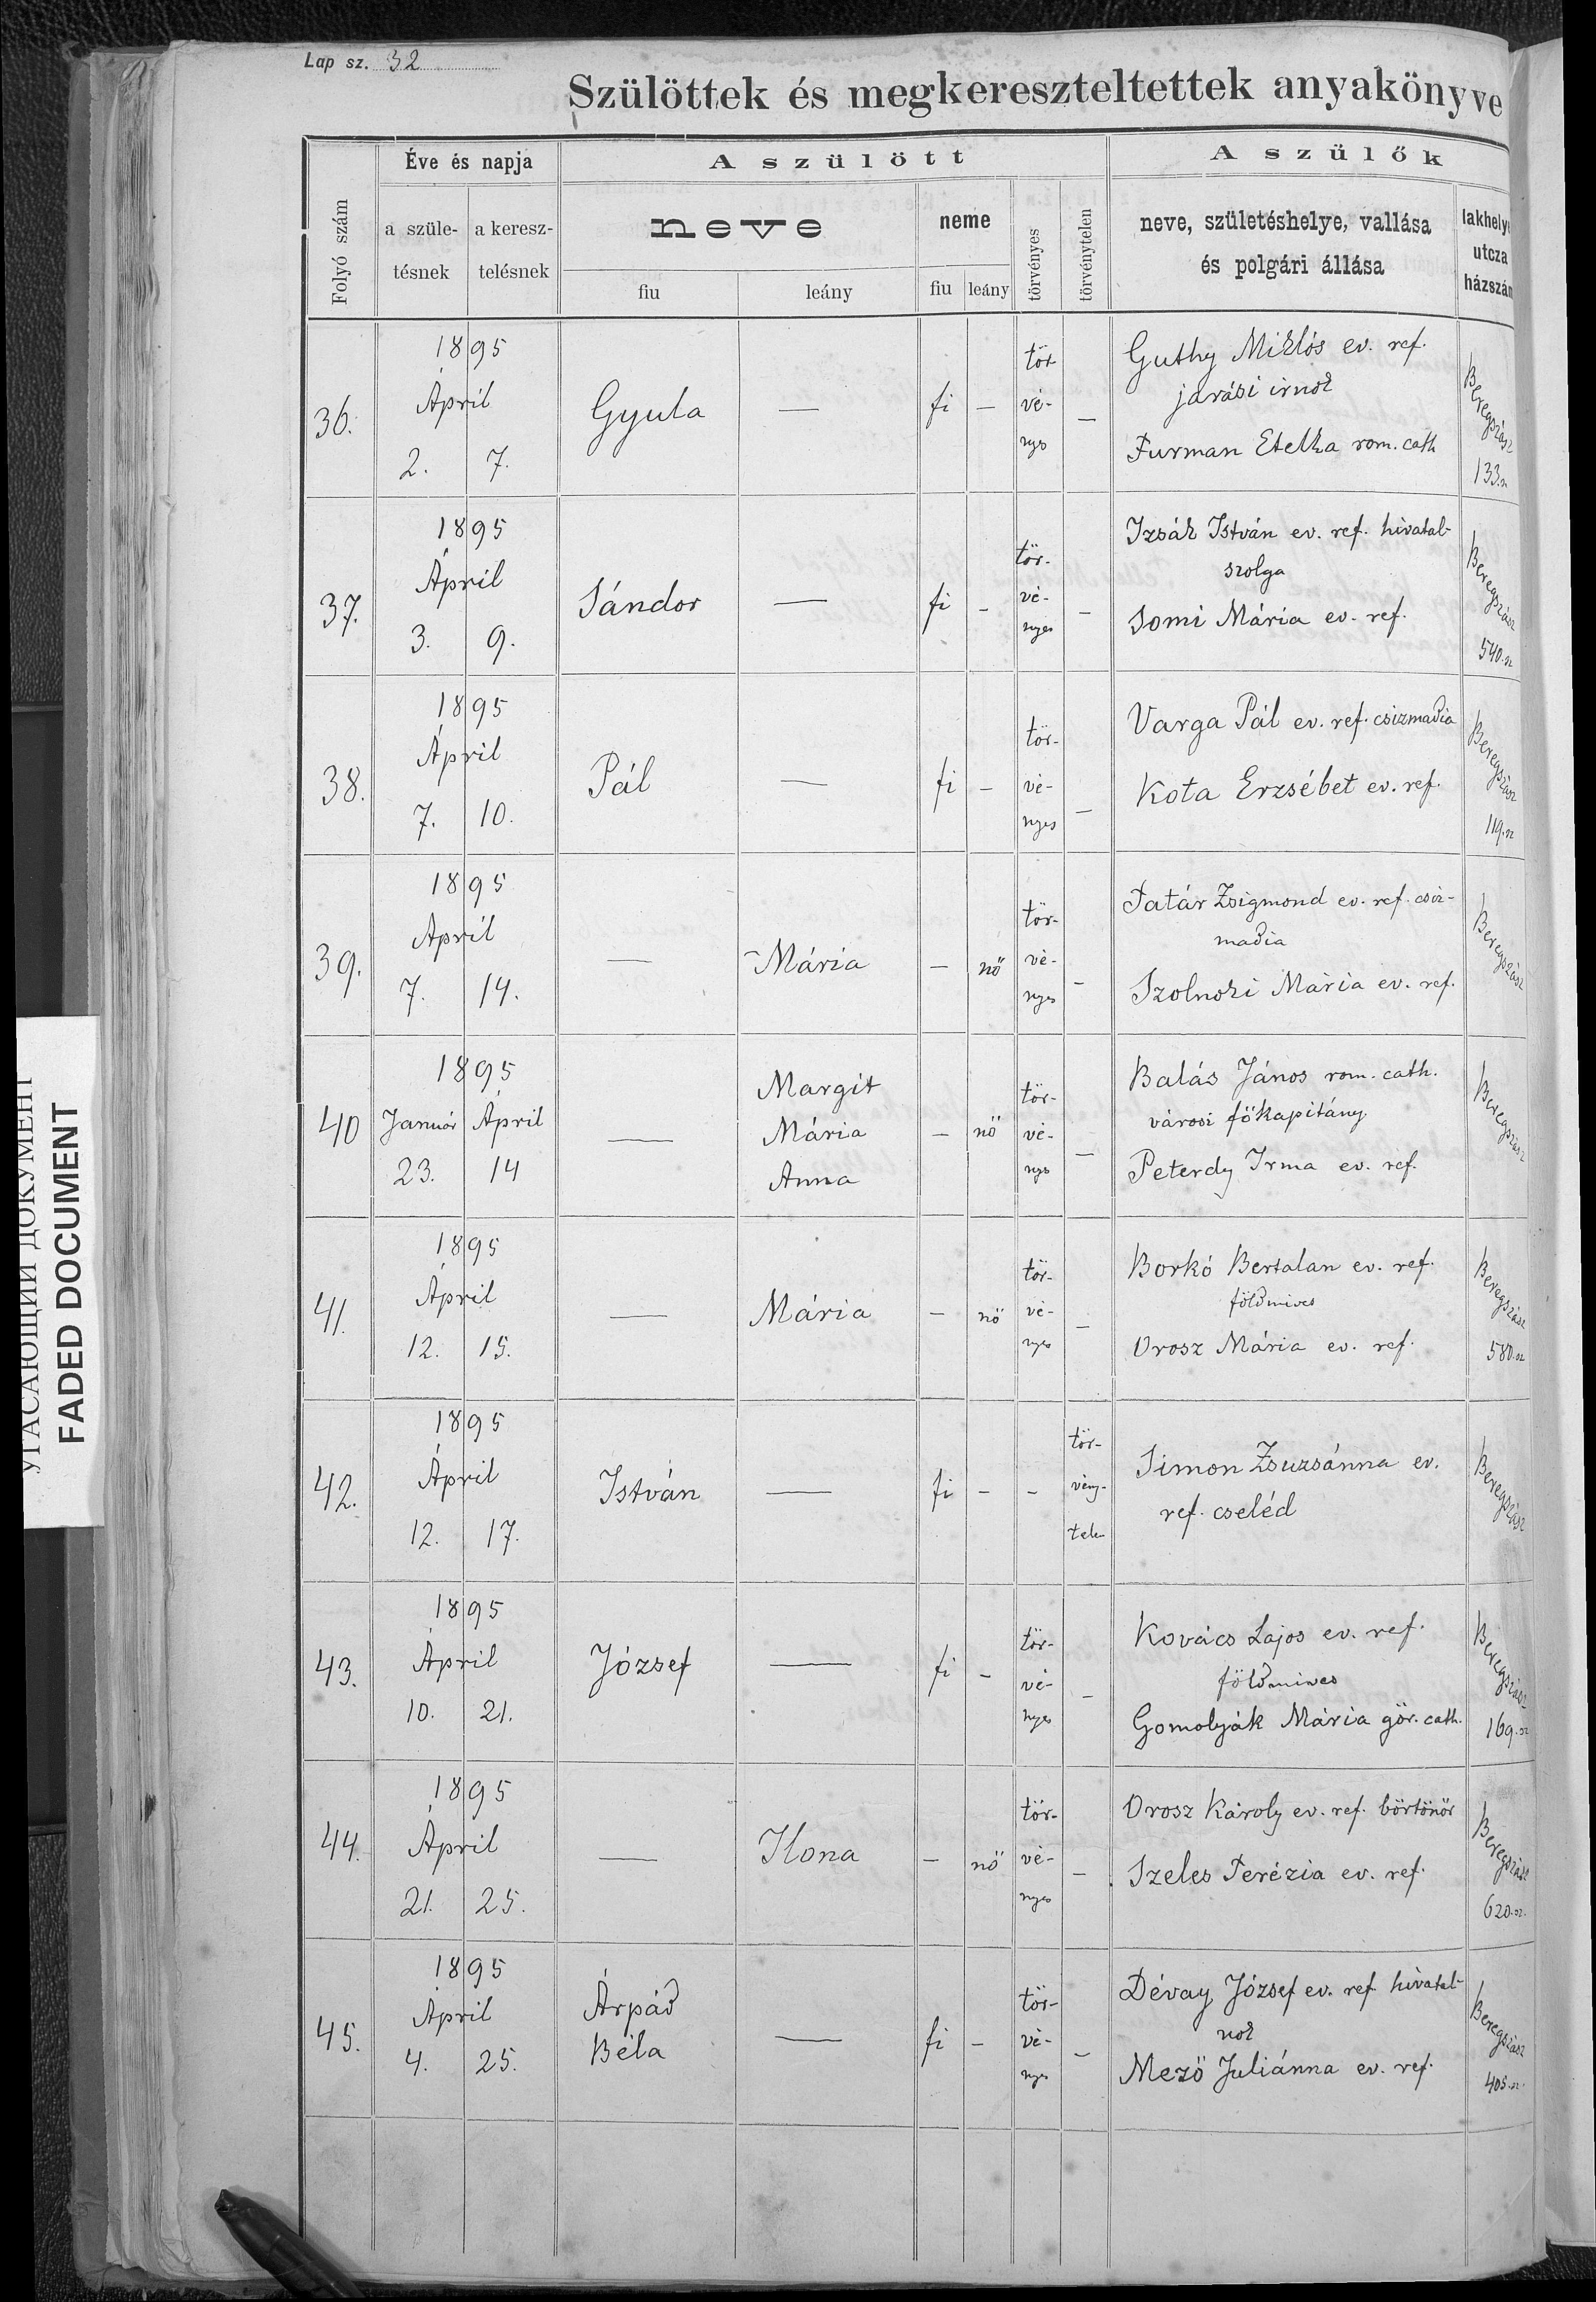 Lap sz. 32
Szülöttek és megkereszteltettek anyakönyve
Folyó szám
Éve és napja
a szüle-
tésnek
a keresz-
telésnek
A szülött
neve
fiu
leány
neme
fiu
leány
törvényes
törvénytelen
A szülők
neve, születéshelye, vallása
és polgári állása
lakhely
utcza
házszám
36.
1895
Ápril
2. 7.
Gyula — fi —
tör-
vé-
nyes
—
Guthy Miklós ev. ref.
járási irnok
Furman Etelka rom. cath
Beregszász
133. sz
37.
1895
Ápril
3. 9.
Sándor — fi —
tör-
vé-
nyes
—
Izsák István ev. ref. hivatal-
szolga
Somi Mária ev. ref.
Beregszász
540. sz
38.
1895
Ápril
7. 10.
Pál — fi —
tör-
vé-
nyes
—
Varga Pál ev. ref. csizmadia
Kota Erzsébet ev. ref.
Beregszász
119. sz
39.
1895
Ápril
7. 14.
— Mária — nő
tör-
vé-
nyes
—
Tatár Zsigmond ev. ref. csiz-
madia
Szolnoki Mária ev. ref.
Beregszász
40
1895
Január Ápril
23. 14
—
Margit
Mária
Anna
— nő
tör-
vé-
nyes
—
Balás János rom. cath.
városi főkapitány
Peterdy Irma ev. ref.
Beregszász
41.
1895
Ápril
12. 15.
— Mária — nő
tör-
vé-
nyes
—
Borkó Bertalan ev. ref.
földmives
Orosz Mária ev. ref.
Beregszász
580. sz
42.
1895
Ápril
12. 17.
István — fi — —
tör-
vény-
telen
Simon Zsuzsánna ev.
ref. cseléd
Beregszász
43.
1895
Ápril
10. 21.
József — fi —
tör-
vé-
nyes
—
Kovács Lajos ev. ref.
földmives
Gomolyák Mária gör. cath.
Beregszász
169. sz
44.
1895
Ápril
21. 25.
— Ilona — nő
tör-
vé-
nyes
—
Orosz Károly ev. ref. börtönőr
Szeles Terézia ev. ref.
Beregszász
620. sz.
45.
1895
Ápril
4. 25.
Árpád
Béla
— fi —
tör-
vé-
nyes
—
Dévay József ev. ref. hivatal-
nok
Mező Juliánna ev. ref.
Beregszász
405. sz.
УГАСАЮЩИЙ ДОКУМЕНТ
FADED DOCUMENT